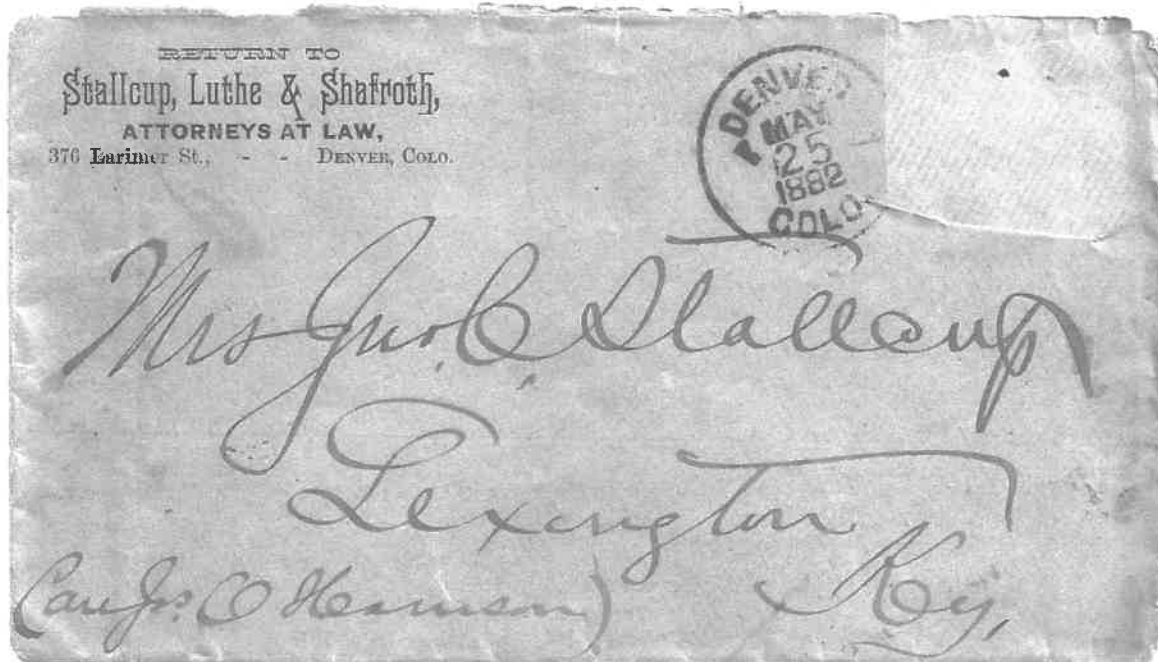 RETURN TO
Stallcup, Luthe & Shafroth,
ATTORNEYS AT LAW,
376 Larimer St., - - DENVER, COLO.
DENVER
MAY
25
1882
COLO
Mrs Jno. C. Stallcup
Lexington
Ky,
(Care Jas. O Harrison)